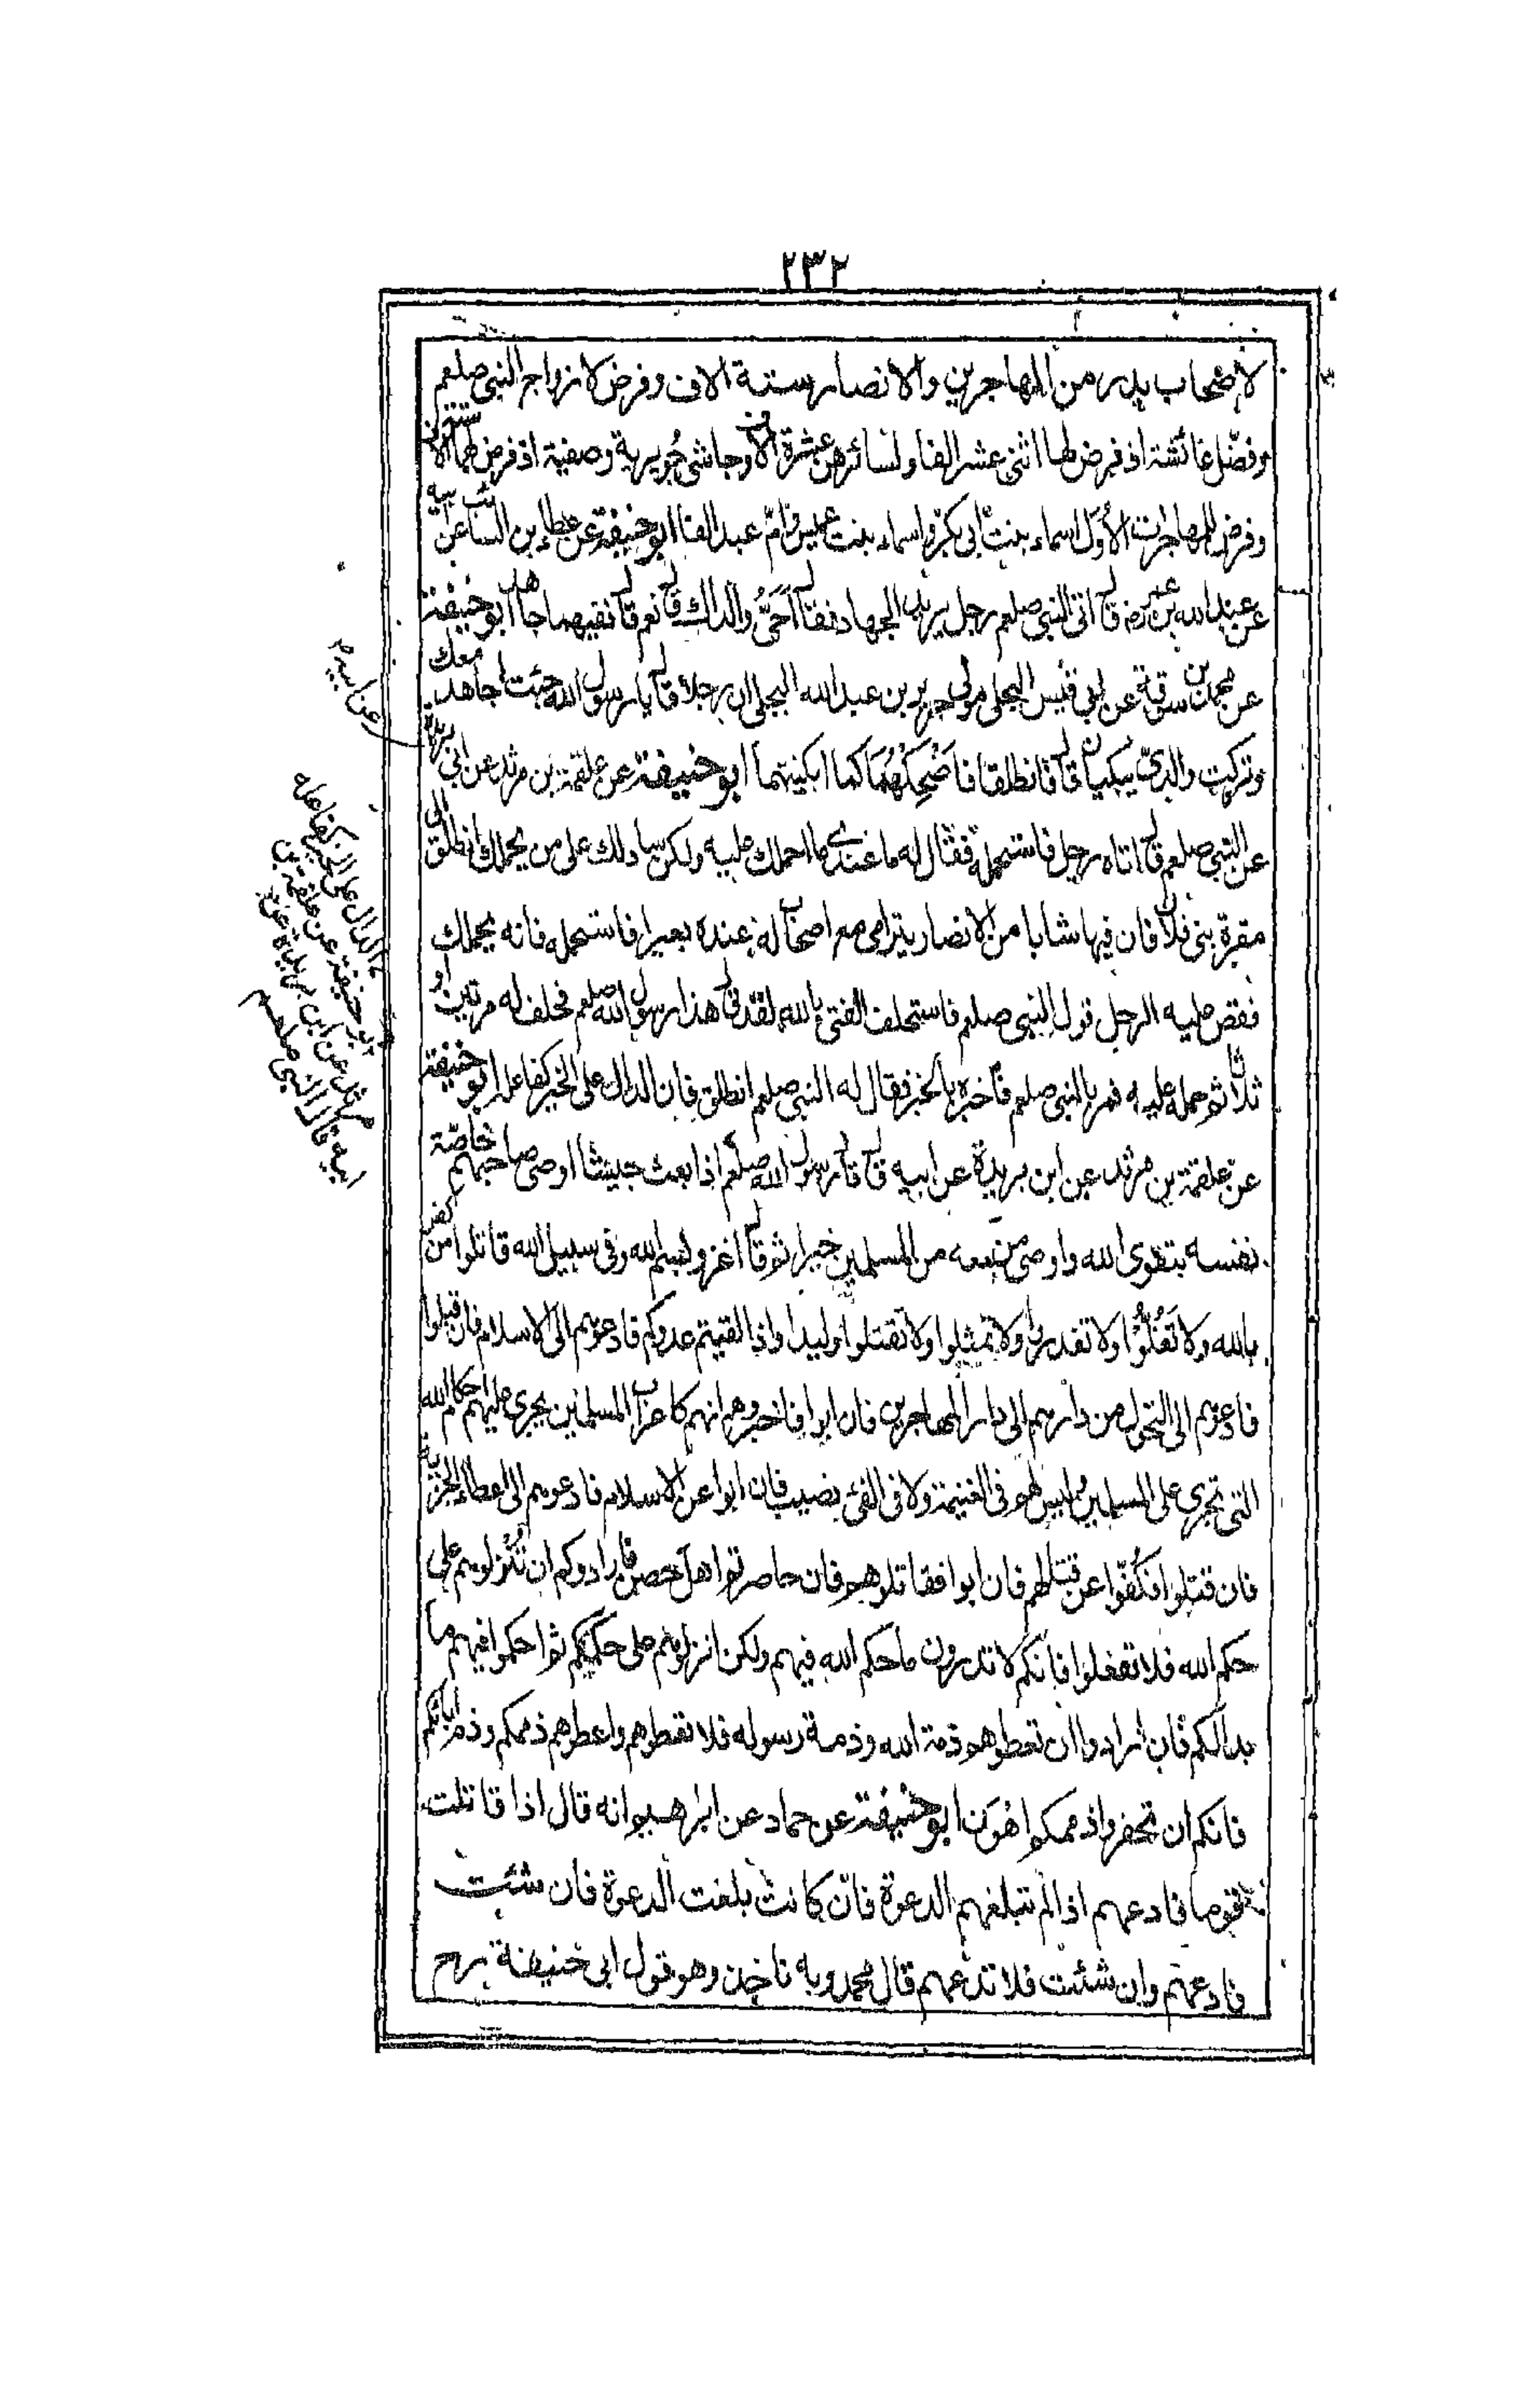 ٢٣٢
لاصحاب بدر من المهاجرين والانصار ستة الاف وفرض لازواج النبي صلعم
وفضّل عائشة اذ فرض لها اثنى عشر الفا ولسائرهن عشرة الاف وحاشى جُويرية وصفية اذ فرض لهما ستة الاف
وفرض للمهاجرات الأُوَل اسماء بنت ابى بكر واسماء بنت عميس وامّ عبد الفا ابو حنيفة عن عطاء بن السائب عن ابيه
عن عبد الله بن عمر رضـ قال اتى النبي صلعم رجل يريد الجهاد فقال أَحَىٌّ والداك قال نعم قال ففيهما جاهد ابو حنيفة
عن محمد بن سوقة عن ابي قيس البجلى مولى جرير بن عبد الله البجلى ان رجلا قال يا رسول الله جئت اجاهد معك
وتركت والدىّ يبكيان قال فانطلق فاَضْحِكْهُمَا كما ابكيتهما ابو حنيفة عن علقمة بن مرثد عن ابن بريدة
عن النبي صلعم قال اتاه رجل فاستحمله فقال له ما عندى ما احملك عليه ولكن سادلك على من يحملك انطلق الى
مقبرة بنى فلان فان فيها شابا من الانصار يترامى مع اصحاب له عنده بعير فاستحمله فانه يحملك
فقص عليه الرجل قول النبي صلعم فاستحلف الفتى بالله لقد قال هذا رسول الله صلعم فحلف له مرتين او
ثلاثا ثم حمله عليه فمر بالنبي صلعم فاخبره بالخبر فقال له النبي صلعم انطلق فان الدال على الخير كفاعله ابو حنيفة
عن علقمة بن مرثد عن ابن بريدة عن ابيه قال قال رسول الله صلعم اذا بعث جيشا اوصى صاحبهم خاصّة
نفسه بتقوى الله واوصى من معه من المسلمين خيرا ثم قال اغزوا بسم الله وفى سبيل الله قاتلوا من كفر
بالله ولا تَغُلُّوْا ولا تغدروا ولا تمثلوا ولا تقتلوا وليدا واذا لقيتم عدوكم فادعوهم الى الاسلام فان قبلوا
فادعوهم الى التحول من دارهم الى دار المهاجرين فان ابوا فاخبروهم انهم كاعراب المسلمين يجرى عليهم احكام الله
التى تجرى على المسلمين وليس لهم فى الغنيمة ولا فى الفئ نصيب فان ابوا عن الاسلام فادعوهم الى اعطاء الجزية
فان قتبلوا فكُفّوا عن قتلهم فان ابوا فقاتلوهم فان حاصرتم اهل حصن فارادوكم ان تُنْزلوهم على
حكم الله فلا تفعلوا فانكم لا تدرون ما حكم الله فيهم ولكن انزلوهم على حكمكم ثم احكموا فيهم ما
بدالكم فان ارادوا ان تعطوهم ذمة الله وذمة رسوله فلا تعطوهم واعطوهم ذممكم وذمم ابائكم
فانكم ان تخفروا ذممكم اهْوَن ابو حنيفة عن حماد عن ابراهيم انه قال اذا قاتلت
قوما فادعهم اذا لم تبلغهم الدعوة فان كانت بلغت الدعوة فان شئت
فادعهم وان شئت فلا تدعهم قال محمد وبه ناخذ وهو قول ابى حنيفة رح
عن ابيه
الدال على الخير كفاعله
ابو حنيفة عن علقمة بن
مرثد عن ابن بريدة عن
ابيه قال قال النبي صلعم